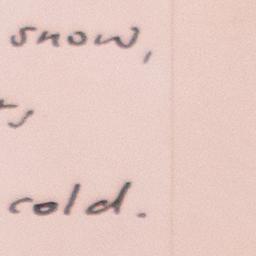 snow,
cold.